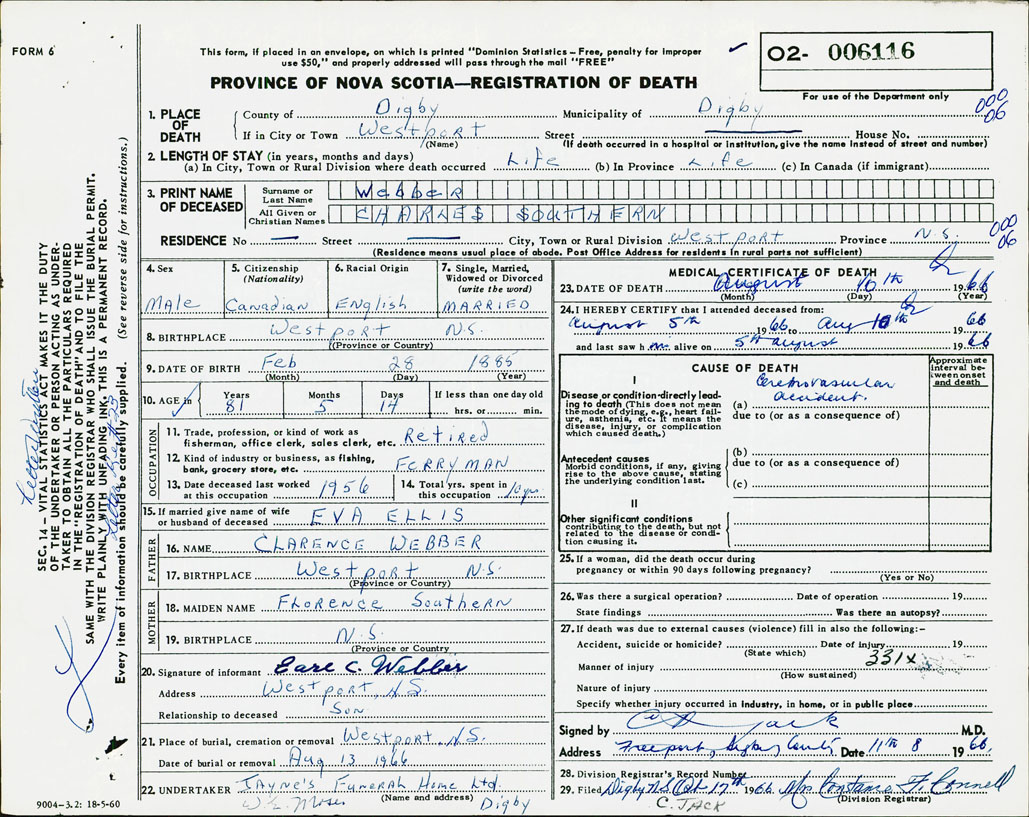 FORM 6
This form, if placed in an envelope, on which is printed "Dominion Statistics – Free, penalty for improper
use $50," and properly addressed will pass through the mail "FREE"
PROVINCE OF NOVA SCOTIA—REGISTRATION OF DEATH
O2- 006116
For use of the Department only
000
06
1. PLACE OF DEATH
County of Digby Municipality of Digby
If in City or Town Westport Street House No.
(Name) (If death occurred in a hospital or institution, give the name instead of street and number)
2. LENGTH OF STAY (in years, months and days)
(a) In City, Town or Rural Division where death occurred Life (b) In Province Life (c) In Canada (if immigrant)
3. PRINT NAME OF DECEASED
Surname or Last Name Webber
All Given or Christian Names CHARLES SOUTHERN
000
06
RESIDENCE No — Street — City, Town or Rural Division Westport Province N.S.
(Residence means usual place of abode. Post Office Address for residents in rural parts not sufficient)
4. Sex Male
5. Citizenship (Nationality) Canadian
6. Racial Origin English
7. Single, Married, Widowed or Divorced (write the word) MARRIED
8. BIRTHPLACE Westport N.S.
(Province or Country)
9. DATE OF BIRTH Feb 28 1885
(Month) (Day) (Year)
10. AGE in Years 81 Months 5 Days 14 If less than one day old hrs. or min.
OCCUPATION
11. Trade, profession, or kind of work as
fisherman, office clerk, sales clerk, etc. Retired
12. Kind of industry or business, as fishing,
bank, grocery store, etc. FERRYMAN
13. Date deceased last worked
at this occupation 1956
14. Total yrs. spent in
this occupation 10 yrs
15. If married give name of wife
or husband of deceased EVA ELLIS
FATHER
16. NAME CLARENCE WEBBER
17. BIRTHPLACE Westport N.S.
(Province or Country)
MOTHER
18. MAIDEN NAME FLORENCE Southern
19. BIRTHPLACE N.S.
(Province or Country)
20. Signature of informant Earl C. Webber
Address Westport, N.S.
Relationship to deceased Son
21. Place of burial, cremation or removal Westport, N.S.
Date of burial or removal Aug 13 1966
22. UNDERTAKER JAYNE'S Funeral Home Ltd.
(Name and address)
Digby
MEDICAL CERTIFICATE OF DEATH
23. DATE OF DEATH August 10th 1966
(Month) (Day) (Year)
24. I HEREBY CERTIFY that I attended deceased from:
August 5th 1966 to Aug 10th 1966
and last saw him alive on 5th August 1966
CAUSE OF DEATH
Approximate interval between onset and death
I
Disease or condition directly leading to death (This does not mean
the mode of dying, e.g., heart failure, asthenia, etc. It means the
disease, injury, or complication
which caused death.)
(a) Cerebrovascular accident.
due to (or as a consequence of)
Antecedent causes
Morbid conditions, if any, giving
rise to the above cause, stating
the underlying condition last.
(b)
due to (or as a consequence of)
(c)
II
Other significant conditions
contributing to the death, but not
related to the disease or condition causing it.
25. If a woman, did the death occur during
pregnancy or within 90 days following pregnancy?
(Yes or No)
26. Was there a surgical operation? Date of operation 19
State findings Was there an autopsy?
27. If death was due to external causes (violence) fill in also the following:–
Accident, suicide or homicide? Date of injury 19
(State which)
331X
Manner of injury
(How sustained)
Nature of injury
Specify whether injury occurred in industry, in home, or in public place
Signed by Jack M.D.
Address Freeport, Digby County Date 11th 8 1966
28. Division Registrar's Record Number
29. Filed Digby N.S. Oct 17th 1966 Mrs Constance F. Connell
(Division Registrar)
C. JACK
SEC. 14 – VITAL STATISTICS ACT MAKES IT THE DUTY
OF THE UNDERTAKER OR PERSON ACTING AS UNDERTAKER TO OBTAIN ALL THE PARTICULARS REQUIRED
IN THE "REGISTRATION OF DEATH" AND TO FILE THE
SAME WITH THE DIVISION REGISTRAR WHO SHALL ISSUE THE BURIAL PERMIT.
WRITE PLAINLY WITH UNFADING INK. THIS IS A PERMANENT RECORD.
Every item of information should be carefully supplied. (See reverse side for instructions.)
9004-3.2: 18-5-60